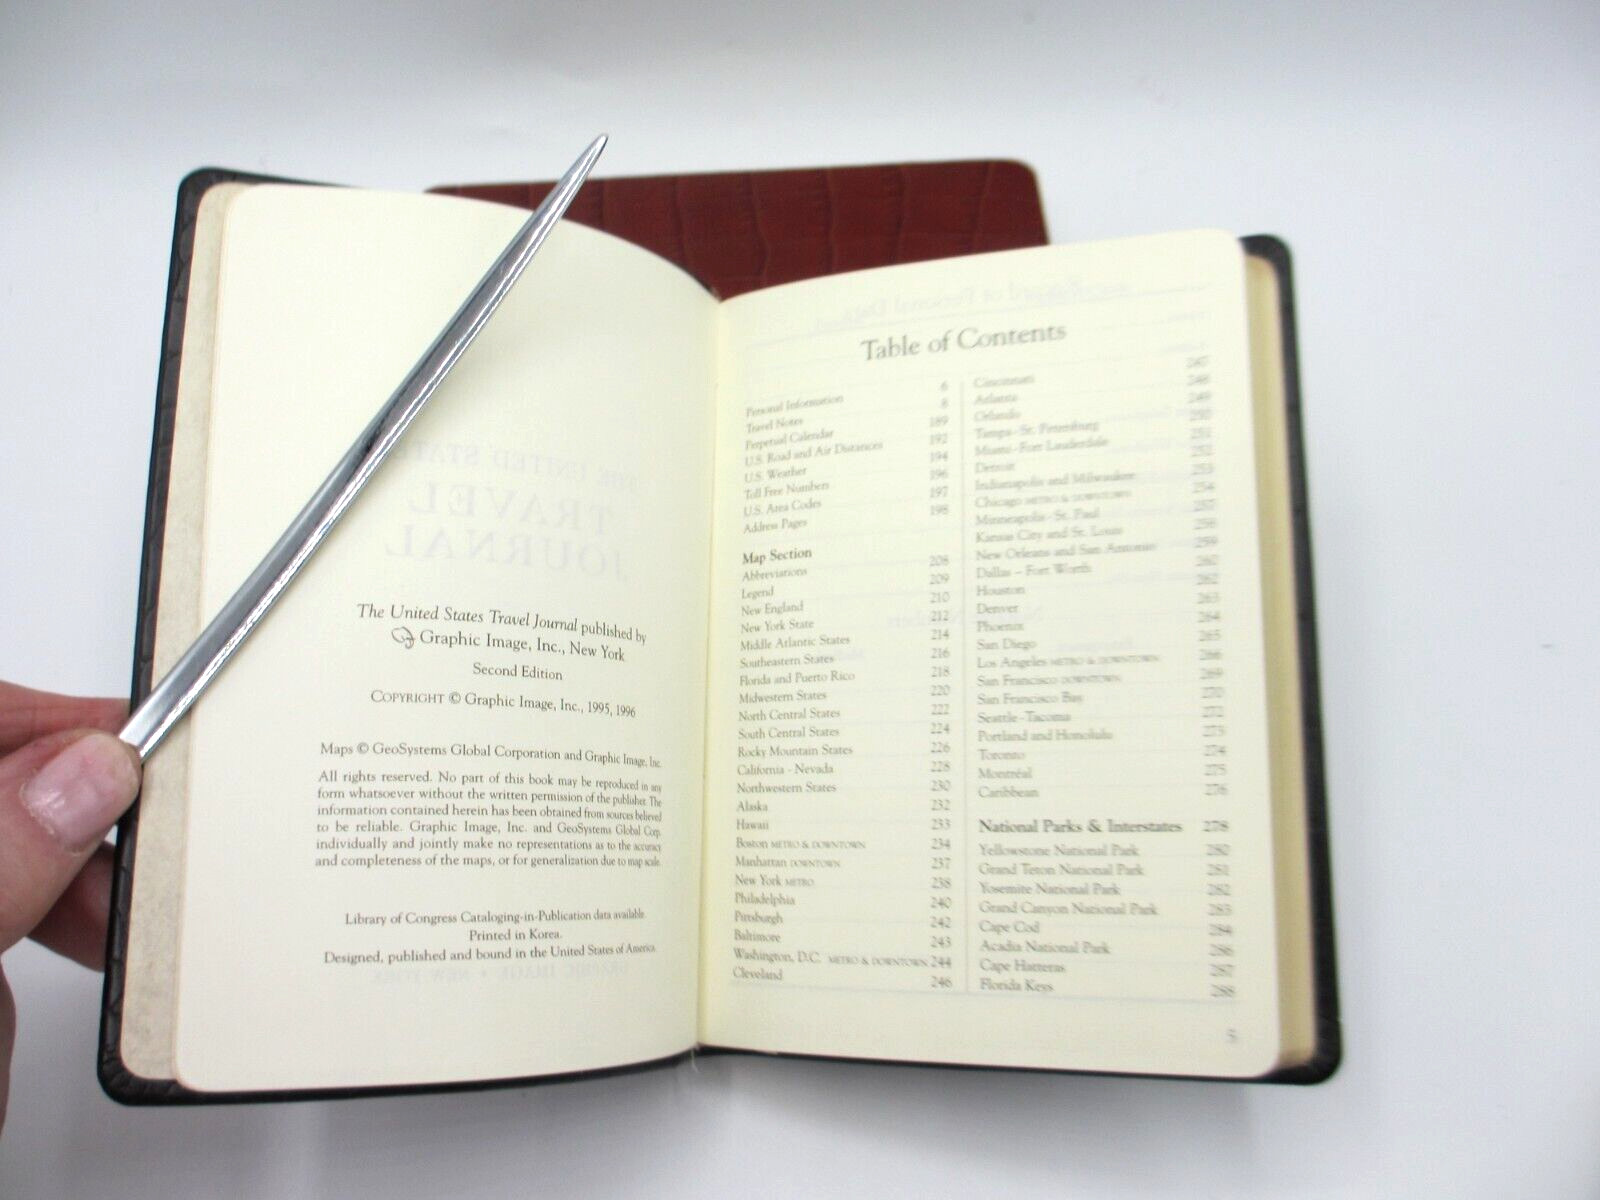 The United States Travel Journal published by
Graphic Image, Inc., New York
Second Edition
COPYRIGHT © Graphic Image, Inc., 1995, 1996
Maps © GeoSystems Global Corporation and Graphic Image, Inc.
All rights reserved. No part of this book may be reproduced in any
form whatsoever without the written permission of the publisher. The
information contained herein has been obtained from sources believed
to be reliable. Graphic Image, Inc. and GeoSystems Global Corp.
individually and jointly make no representations as to the accuracy
and completeness of the maps, or for generalization due to map scale.
Library of Congress Cataloging-in-Publication data available.
Printed in Korea.
Designed, published and bound in the United States of America.
Table of Contents
Personal Information 6
Travel Notes 8
Perpetual Calendar 189
U.S. Road and Air Distances 192
U.S. Weather 194
Toll Free Numbers 196
U.S. Area Codes 197
Address Pages 198
Map Section
Abbreviations 208
Legend 209
New England 210
New York State 212
Middle Atlantic States 214
Southeastern States 216
Florida and Puerto Rico 218
Midwestern States 220
North Central States 222
South Central States 224
Rocky Mountain States 226
California - Nevada 228
Northwestern States 230
Alaska 232
Hawaii 233
Boston METRO & DOWNTOWN 234
Manhattan DOWNTOWN 237
New York METRO 238
Philadelphia 240
Pittsburgh 242
Baltimore 243
Washington, D.C. METRO & DOWNTOWN 244
Cleveland 246
Cincinnati 247
Atlanta 248
Orlando 249
Tampa-St. Petersburg 250
Miami-Fort Lauderdale 251
Detroit 252
Indianapolis and Milwaukee 253
Chicago METRO & DOWNTOWN 254
Minneapolis-St. Paul 257
Kansas City and St. Louis 258
New Orleans and San Antonio 259
Dallas – Fort Worth 260
Houston 262
Denver 263
Phoenix 264
San Diego 265
Los Angeles METRO & DOWNTOWN 266
San Francisco DOWNTOWN 269
San Francisco Bay 270
Seattle-Tacoma 272
Portland and Honolulu 273
Toronto 274
Montréal 275
Caribbean 276
National Parks & Interstates 278
Yellowstone National Park 280
Grand Teton National Park 281
Yosemite National Park 282
Grand Canyon National Park 283
Cape Cod 284
Acadia National Park 286
Cape Hatteras 287
Florida Keys 288
5